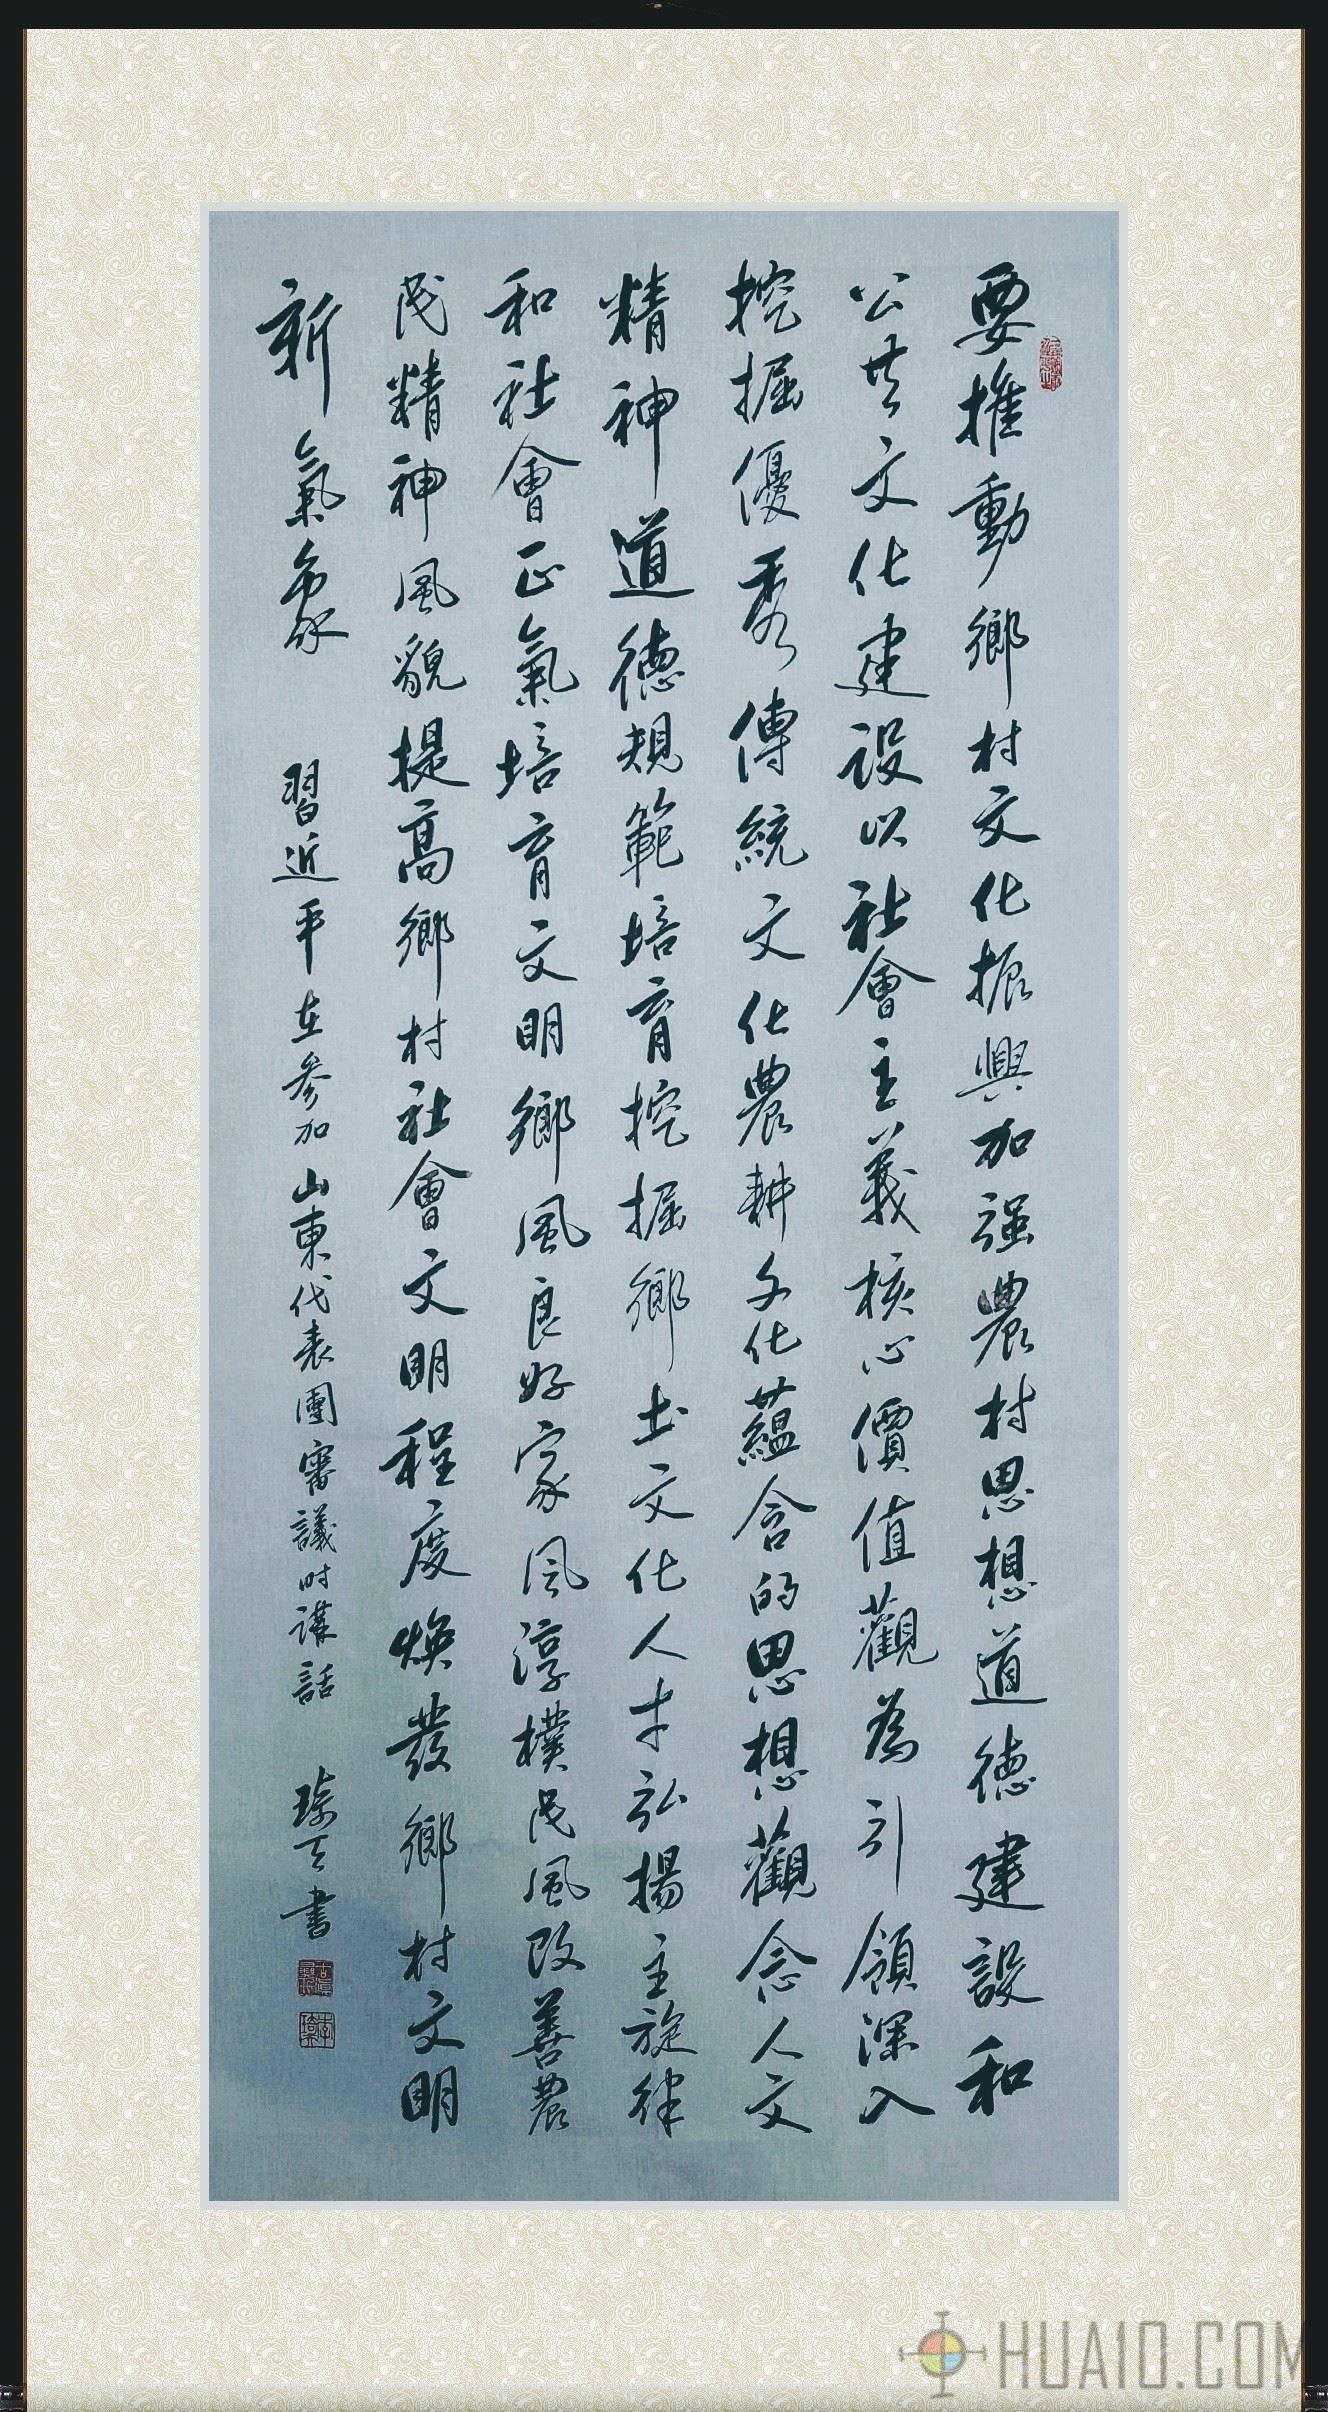 要推動鄉村文化振興加强農村思想道德建設和
公共文化建設以社會主義核心價值觀為引領深入
挖掘優秀傳統文化農耕文化蘊含的思想觀念人文
精神道德規範培育挖掘鄉土文化人才弘揚主旋律
和社會正氣培育文明鄉風良好家風淳樸民風改善農
民精神風貌提高鄉村社會文明程度煥發鄉村文明
新氣象
習近平在參加山東代表團審議时講話
書
HUA10.COM